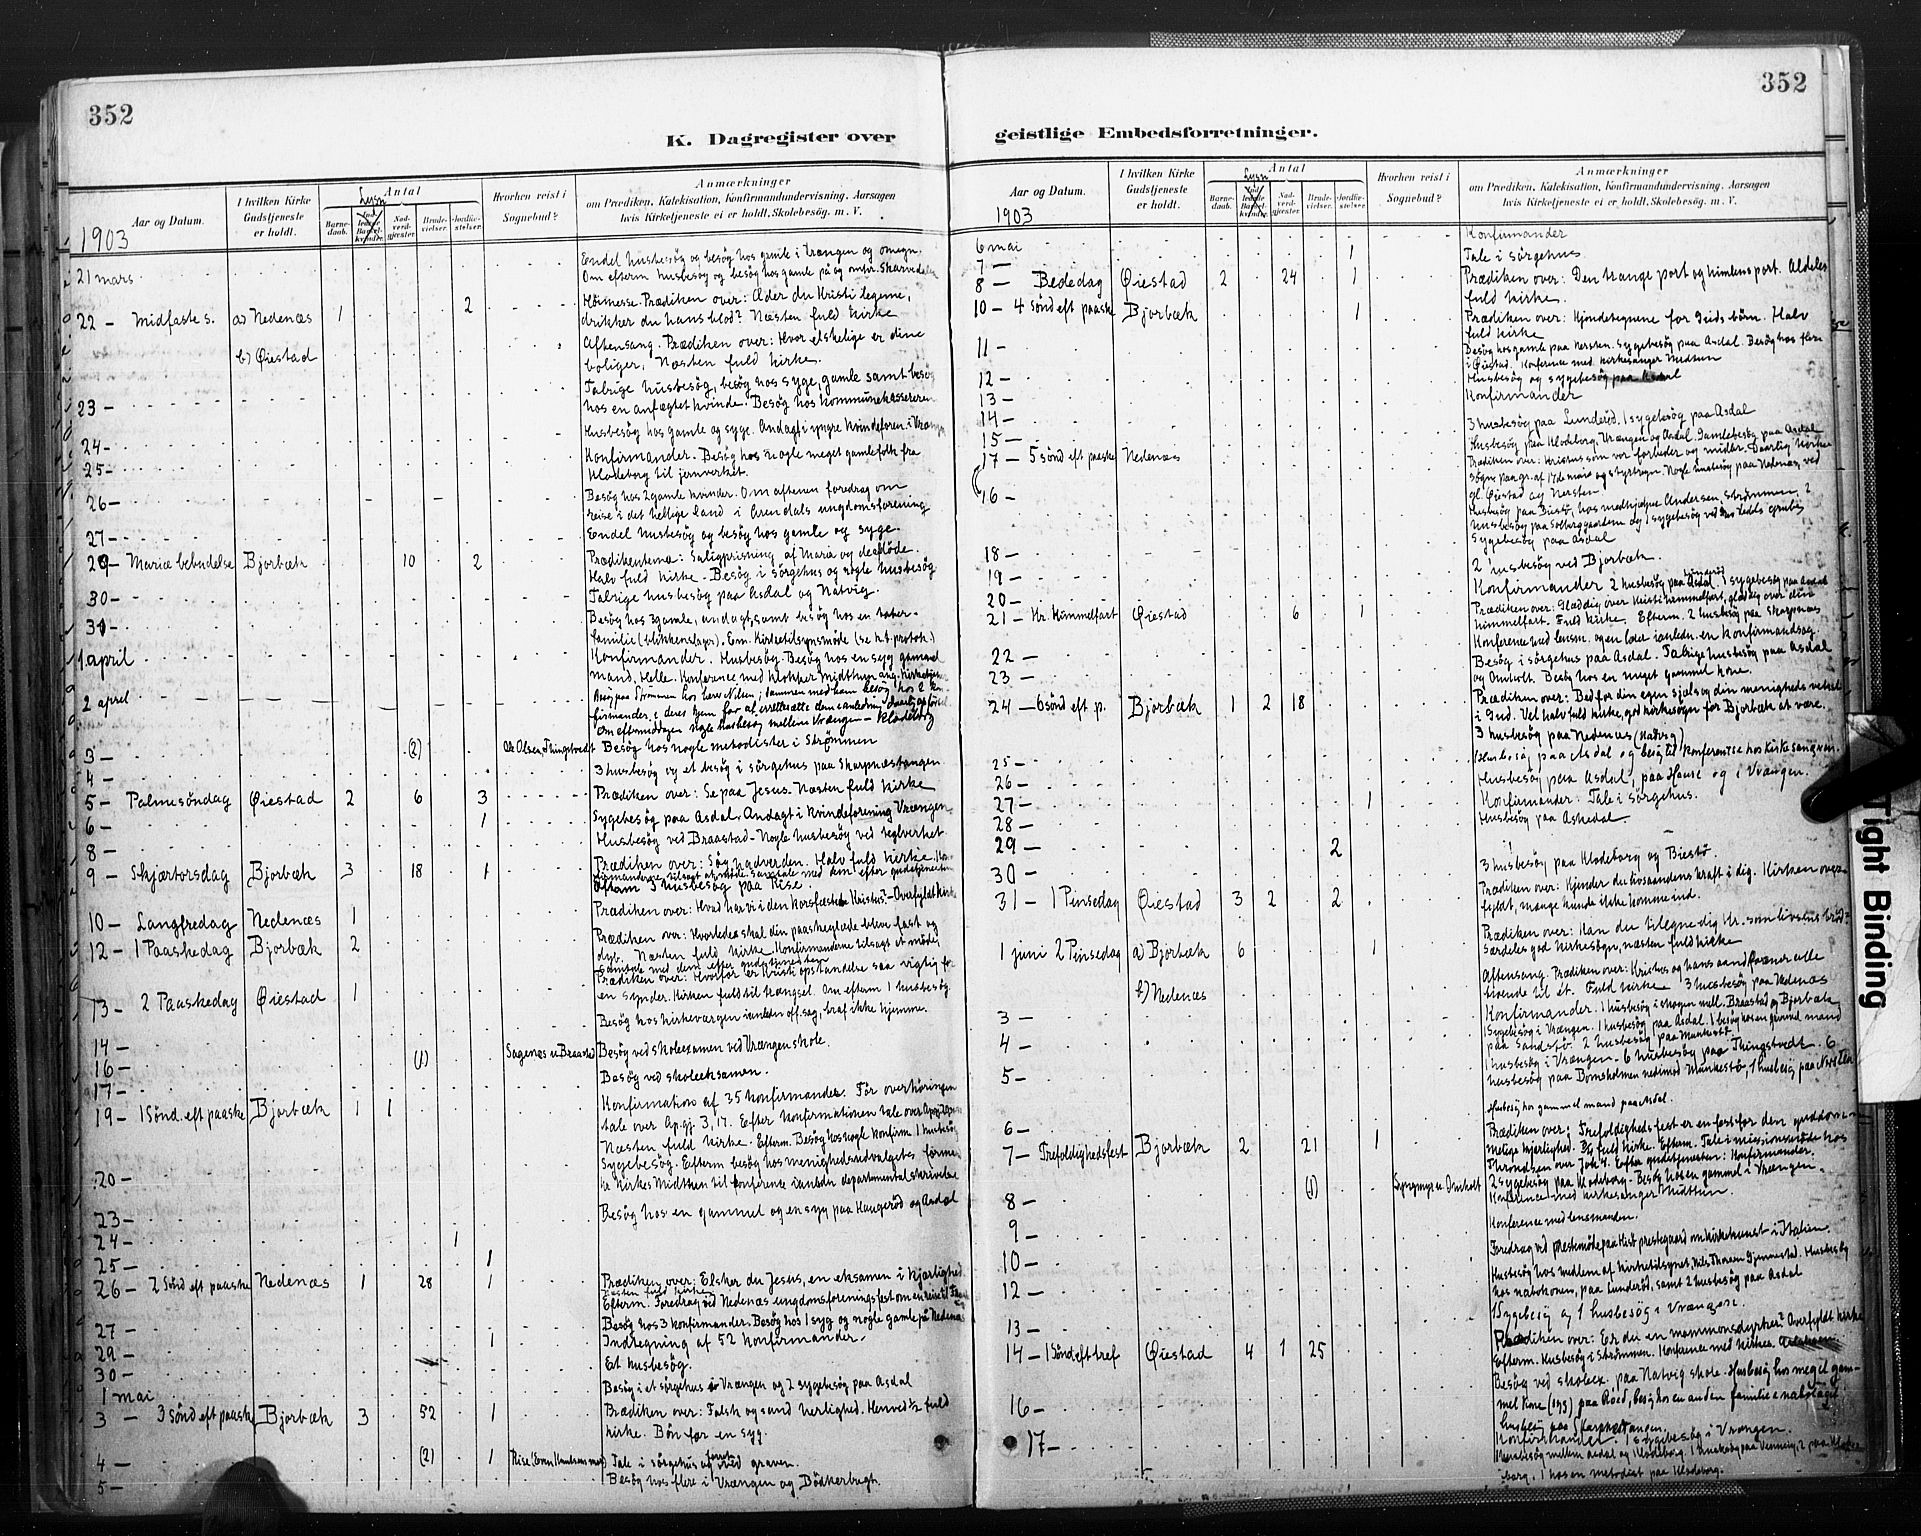 352
K. Dagregister over
Aar og Datum.
I hvilken Kirke Gudstjeneste er holdt.
Antal
Lysn
Barnedaab.
Nadverdgjæster
Brudevielser.
Jordfæstelser.
Hvorhen reist i Sognebud?
Anmærkninger
om Prædiken, Katekisation, Konfirmandundervisning, Aarsagen
hvis Kirketjeneste ei er holdt, Skolebesøg. m. V.
1903
21 mars Endel husbesøg og besøg hos gamle i Vrængen og omegn.
Om efterm husbesøg og besøg hos gamle på og omkr.
22 - Midfastes. a) Nedenæs 1 2 Høimesse. Prædiken over: Æder du Kristi legeme,
drikker du hans blod? Næsten fuld kirke
b) Øiestad Aftensang. Prædiken over: Hvor elskelige er dine
boliger. Næsten fuld kirke.
23 - Talrige husbesøg, besøg hos syge, gamle samt besøg
hos en anfægtet kvinde. Besøg hos kommunekassereren
24 - Husbesøg hos gamle og syge. Andagt i yngre kvindeforen. i Vrængen
25 - Konfirmander. Besøg hos nogle meget gamle folk fra
Klodeborg til jernverket.
26 - Besøg hos 2 gamle kvinder. Om aftenen foredrag om
reise i det hellige land i Arendals ungdomsforening
27 - Endel husbesøg og besøg hos gamle og syge.
29 - Mariæ bebudelse Bjorbæk 10 2 Prædikentema: Saligprisning af Maria og de døde.
Halv fuld kirke - Besøg i sørgehus og nogle husbesøg
30 - Talrige husbesøg paa Asdal og Natvig.
31 - Besøg hos 3 gamle, andagt, samt besøg hos en tater-
familie (blikkenslager). Em. Kirketilsynsmøde (se h.s. protok.)
1 april Konfirmander. Husbesøg. Besøg hos en syg gammel
mand, Helle. Konference med klokker Midthun ang.
2 april
Om eftermiddagen nogle husbesøg mellem Vrængen - Klodeborg
3 - (2) Ole Olsen, Thingstvedt Besøg hos nogle metodister i Strømmen
4 - 3 husbesøg og et besøg i sørgehus paa Skarpnæstangen
5 - Palmesøndag Øiestad 2 6 3 Prædiken over: Se paa Jesus. Næsten fuld kirke
6 - 1 Sygebesøg paa Asdal. Andagt i kvindeforening Vrængen
8 - Husbesøg ved Braastad - Nogle husbesøg ved teglverket
9 - Skjærtorsdag Bjorbæk 3 18 1 Prædiken over: Søg nadverden. Halv fuld kirke.
Efterm 3 husbesøg paa Rise.
10 - Langfredag Nedenæs 1 Prædiken over: Hvad har vi i den korsfæstede Kristus? - Overfyldt kirke
12 - 1 Paaskedag Bjorbæk 2 Prædiken over: Hvorledes skal din paaskeglæde blive fast og
dyb. Næsten fuld kirke. Konfirmanderne tilsagt at møde,
Samtale med dem efter gudstjenesten
13 - 2 Paaskedag Øiestad 1 Prædiken over: Hvorfor er Kristi opstandelse saa vigtig for
en synder. Kirken fuld til trængsel. Om efterm 1 husbesøg.
14 - Besøg hos kirkeværgen
16 - (1) Sagenæs v Braastad Besøg ved skoleexamen ved Vrængen skole.
17 - Besøg ved skoleeksamen.
19 - 1 Sønd. eft paaske Bjorbæk 1 1 Konfirmation af 35 konfirmander. Før overhøringen
tale over Ap.gj. 3, 17. Efter konfirmationen tale over
Næsten fuld kirke. Efterm. Besøg hos nogle konfirm. 1 husbesøg
20 - Sygebesøg. Efterm besøg hos menighedsudvalgets formand
23 - Besøg hos en gammel og en syg paa Haugerød og Asdal
24 - 1
25 - 1
26 - 2 Sønd eft paaske Nedenæs 1 28 1 Prædiken over: Elsker du Jesus, en eksamen i kjærlighed
Næsten fuld kirke
Efterm. Foredrag ved Nedenæs ungdomsforeningsfest om en reise til
27 - Besøg hos 3 konfirmander. Besøg hos 1 syg og nogle gamle på Nedenæs
29 - 1 Indtegning af 52 konfirmander.
30 - Et husbesøg.
1 mai Besøg i et sørgehus i Vrængen og 2 sygebesøg paa Asdal
3 - 3 Sønd eft paaske Bjorbæk 3 52 1 Prædiken over: Falsk og sand herlighed. Henved ½ fuld
kirke. Bøn for en syg.
4 - (2) 1 Tale i sørgehus og ved graven.
5 - Besøg hos flere i Vrængen og Dökkerbugt.
352
geistlige Embedsforretninger.
Aar og Datum.
I hvilken Kirke Gudstjeneste er holdt.
Antal
Lysn
Barnedaab.
Nadverdgjæster
Brudevielser.
Jordfæstelser.
Hvorhen reist i Sognebud?
Anmærkninger
om Prædiken, Katekisation, Konfirmandundervisning, Aarsagen
hvis Kirketjeneste ei er holdt, Skolebesøg. m. V.
1903
6 mai Konfirmander
7 - 1 Tale i sørgehus
8 - Bededag Øiestad 2 24 1 Prædiken over: Den trange port og himlens port. Aldeles
fuld kirke.
10 - 4 Sønd eft paaske Bjorbæk 1 Prædiken over: Kjendetegnene for Guds børn. Halv
fuld kirke
11 - Besøg hos gamle paa Nersten. Sygebesøg paa Asdal. Besøg hos flere
i Øiestad. Konference med kirkesanger Midthun
12 - Husbesøg og sygebesøg
13 - Konfirmander
14 - 3 husbesøg paa Lunderød. 1 sygebesøg paa Asdal
15 - Husbesøg paa Klodeborg, Vrængen og Asdal. Gamlebesøg paa Asdal
17 - 5 Sønd eft paaske Nedenæs Prædiken over: Kristus som vor forbeder og midler. Daarlig kirke-
søgn paa gr. af 17de mai og styrtregn. Nogle husbesøg paa Nedenæs, ved
gl. Øiestad og Nersten
16 - Husbesøg paa Biestø, hos medhjælper Andersen, Strømmen, 2
husbesøg paa Solberggaardene og 1 sygebesøg ved
18 - Sygebesøg paa Asdal
19 - 2 husbesøg ved Bjorbæk.
20 - Konfirmander 2 husbesøg paa Lunderød. 1 sygebesøg paa Asdal
21 - Kr. Himmelfart Øiestad 6 1 Prædiken over: Glæd dig over Kristi himmelfart, glæd dig over din
himmelfart. Fuld kirke. Efterm. 2 husbesøg paa Skarpnæs
22 - Konference med lensm.
23 - Besøg i sørgehus paa Asdal. Talrige husbesøg paa Asdal
og Omholt. Besøg hos en meget gammel kone.
24 - 6 Sønd eft p. Bjorbæk 1 2 18 Prædiken over: Bed for din egen sjæl og din menigheds vekst
i Gud. Vel halv fuld kirke, god kirkesøgn for Bjorbæk at være.
3 husbesøg paa Nedenæs (Natvig)
25 - Husbesøg paa Asdal og besøg til konferentse hos kirkesangeren
26 - Husbesøg paa Asdal, paa Hause og i Vrængen.
27 - 1 Konfirmander. Tale i sørgehus.
28 - Husbesøg paa Askedal
29 - 2
30 - 3 husbesøg paa Klodeborg og Biestø.
31 - 1 Pinsedag Øiestad 3 2 2 Prædiken over: Kjender du livsaandens kraft i dig. Kirken over-
fyldt, mange kunde ikke komme ind.
1 juni 2 Pinsedag a) Bjorbæk 6 1 Prædiken over: Kan du tilegne dig Kr. som livsens brød?
Særdeles god kirkesøgn, næsten fuld kirke
b) Nedenæs Aftensang. Prædiken over: Kristus og hans aand kræver alle
troende til ét. Fuld kirke 3 husbesøg paa Nedenæs
3 - Konfirmander. 1 husbesøg i skogen mell. Braastad og Bjorbæk
4 - 1 Sygebesøg i Vrængen. 1 husbesøg paa Asdal. 1 besøg hos en gammel mand
paa Sandstø. 2 husbesøg paa
5 - 1 husbesøg i Vrængen - 6 husbesøg paa Thingstvedt. 6
husbesøg paa Bomsholmen nedimod Munkestø, 1 husbesøg paa Nersten
6 - Husbesøg hos gammel mand paa Asdal.
7 - Trefoldighedsfest Bjorbæk 2 21 1 Prædiken over: Trefoldighedsfest er en fest for den guddom-
melige kjærlighed. Fuld kirke. Efterm. Tale i missionsmøde hos
Throndsen over Joh 4. Efter gudstjenesten: Konfirmander.
8 - (1) 2 sygebesøg paa Klodeborg - Besøg hos en gammel i Vrængen.
Konference med kirkesanger Midthun
9 - Konference med lensmanden.
10 - Foredrag ved prestemøde paa Hist prestegaard om kirkekunst i Italien
12 - Husbesøg hos medlem af kirketilsynet, Nils Thorsen Gjennestad. Husbesøg
hos nabokonen, paa Lunderød, samt 2 husbesøg paa Asdal
13 - 1 Sygebesøg og 1 husbesøg i Vrængen.
14 - 1 Sønd eft tref Øiestad 4 1 25 Prædiken over: Er du en mammonsdyrker? Overfyldt kirke
Efterm. Husbesøg i Strømmen. Konference med kirkes.
16 - Besøg ved skoleex. paa Natvig skole. Husbesøg hos meget gam-
mel kone paa Røed, besøg hos en anden familie
husbesøg paa Skarpnestangen.
17 - Konfirmander. 1 sygebesøg i Vrængen.
Husbesøg mellem Asdal og Klodeborg, 1 husbesøg paa
borg, 1 hos en metodist paa Klodeborg.
Tight Binding